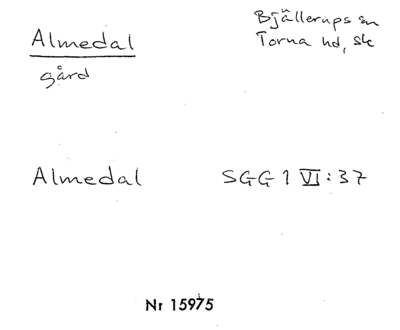 Almedal
gård
Bjällerups sn
Torna hd, sk
Almedal
SGG 1 VI:37
Nr 15975